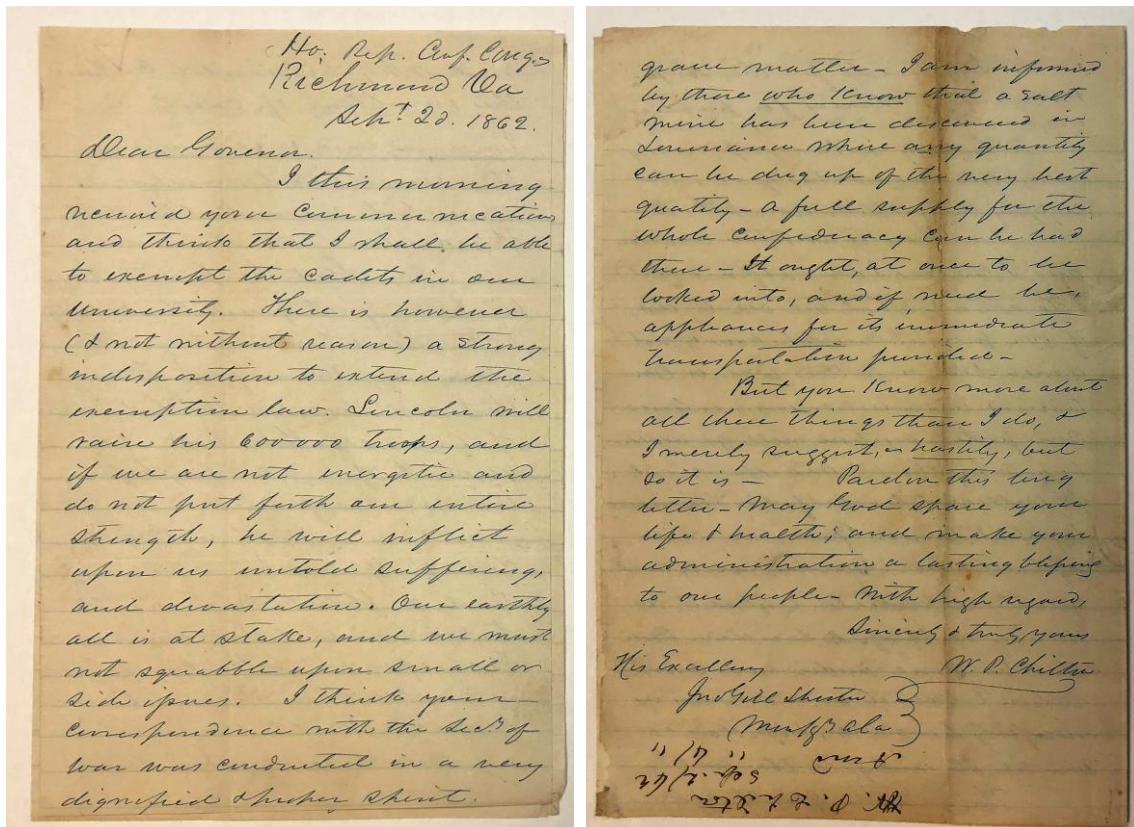 Ho. Rep. Conf. Cong.
Richmond Va
Sept. 1862.
Dear Govenor.
I this morning
received your communication
and think that I shall be able
to exempt the cadets in our
University. There is however
(& not without reason) a strong
indisposition to extend the
exemption law. Lincoln will
raise his 600000 troops, and
if we are not energetic and
do not put forth our entire
strength, he will inflict
upon us untold suffering,
and devastation. Our earthly
all is at stake, and we must
not squabble upon small or
side issues. I think your
correspondence with the Secy of
war was conducted in a very
dignified & proper spirit.
grave matter - I am informed
by those who know that a salt
mine has been discovered in
Louisiana where any quantity
can be dug up of the very best
quality - a full supply for the
whole confederacy can be had
there - It ought, at once to be
looked into, and if need be,
appliances for its immediate
transportation provided -
But you know more about
all these things than I do, &
I merely suggest, hastily, but
so it is - Pardon this long
letter - May God spare your
life & health; and make your
administration a lasting blessing
to our people - With high regard,
Sincerely & truly yours
His Excellency W. P. Chilton
Jno Gill Shorter
Montg Ala
W. P. Chilton
Sep. /62